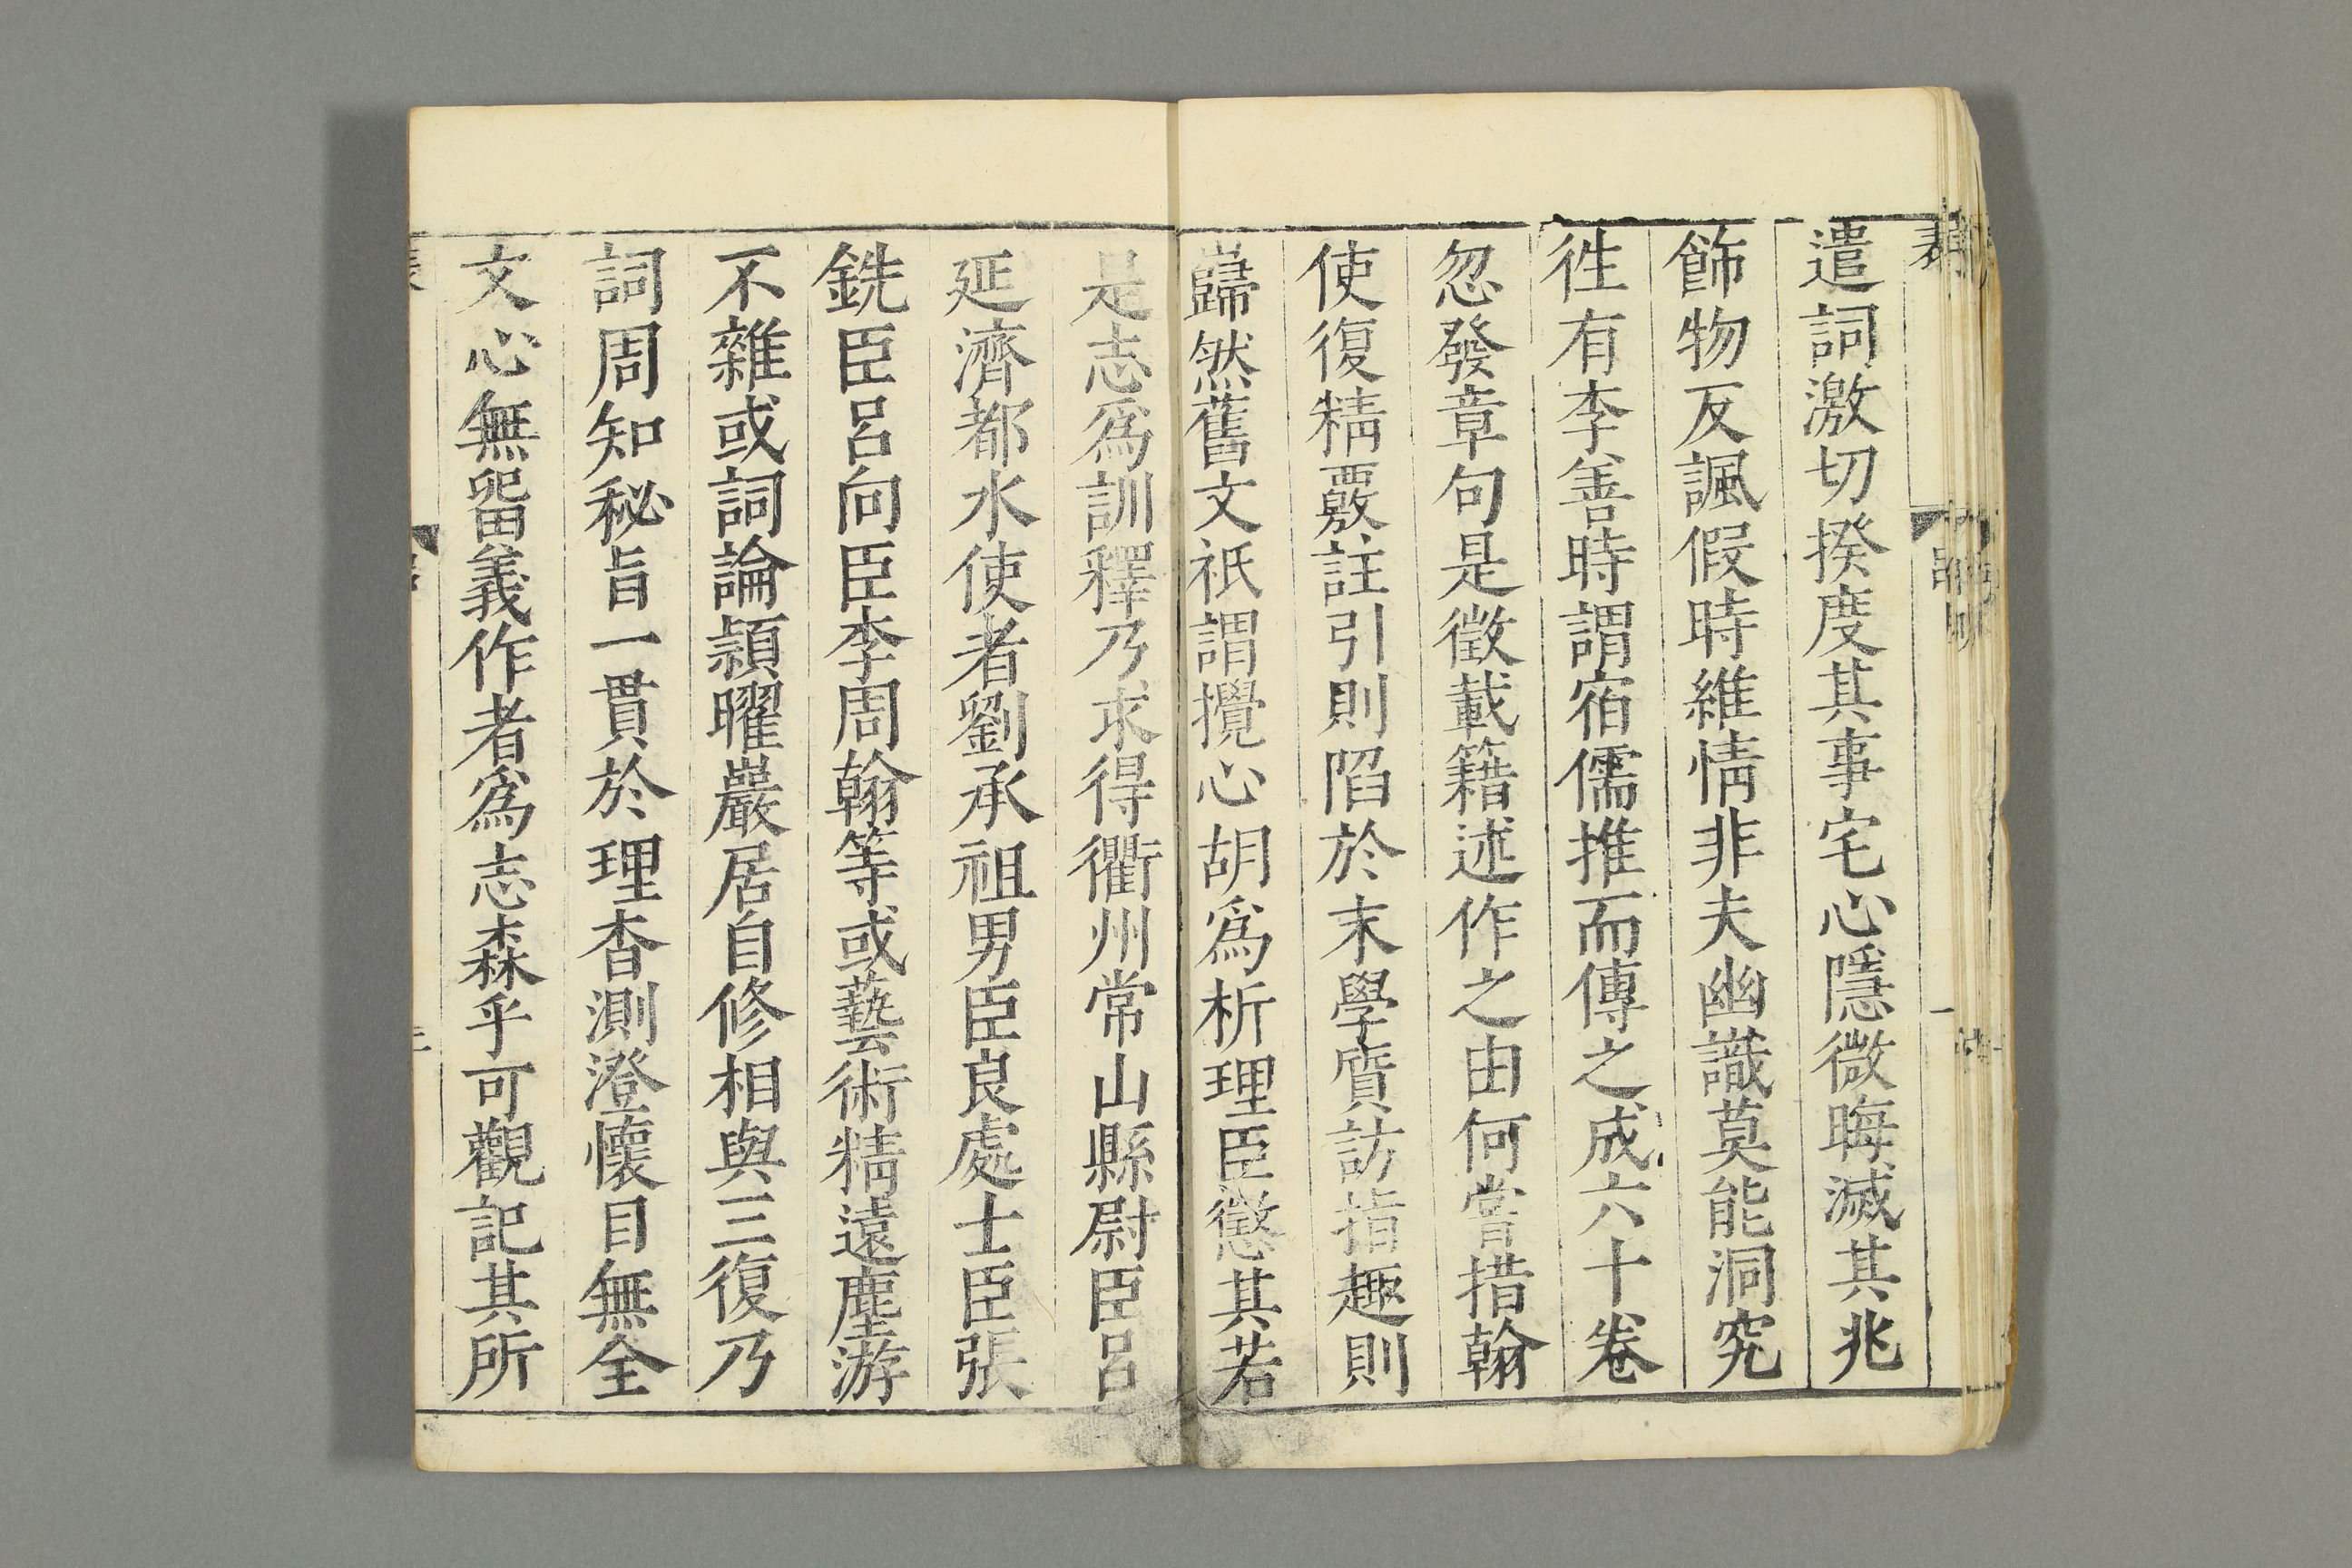 遣詞激切揆度其事宅心隱微晦滅其兆
飾物反諷假時維情非夫幽識莫能洞究
徃有李善時謂宿儒推而傳之成六十卷
忽發章句是徵載籍述作之由何嘗措翰
使復精覈註引則陷於末學質訪指趣則
巋然舊文祇謂攪心胡爲析理臣懲其若
是志爲訓釋乃求得衢州常山縣尉臣呂
延濟都水使者劉承祖男臣良處士臣張
銑臣呂向臣李周翰等或藝術精遠塵游
不雜或詞論頴曜巖居自修相與三復乃
詞周知秘旨一貫於理杳測澄懷目無全
文心無畱義作者爲志森乎可觀記其所